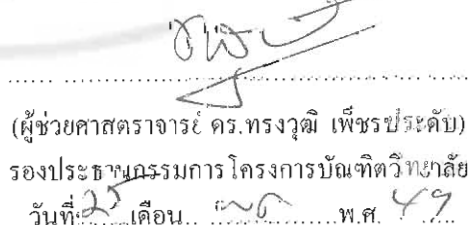 (ผู้ช่วยศาสตราจารย์ ดร.ทรงวุฒิ เพ็ชรประดับ)
รองประธานกรรมการโครงการบัณฑิตวิทยาลัย
วันที่ 25 เดือน พ.ศ. 49